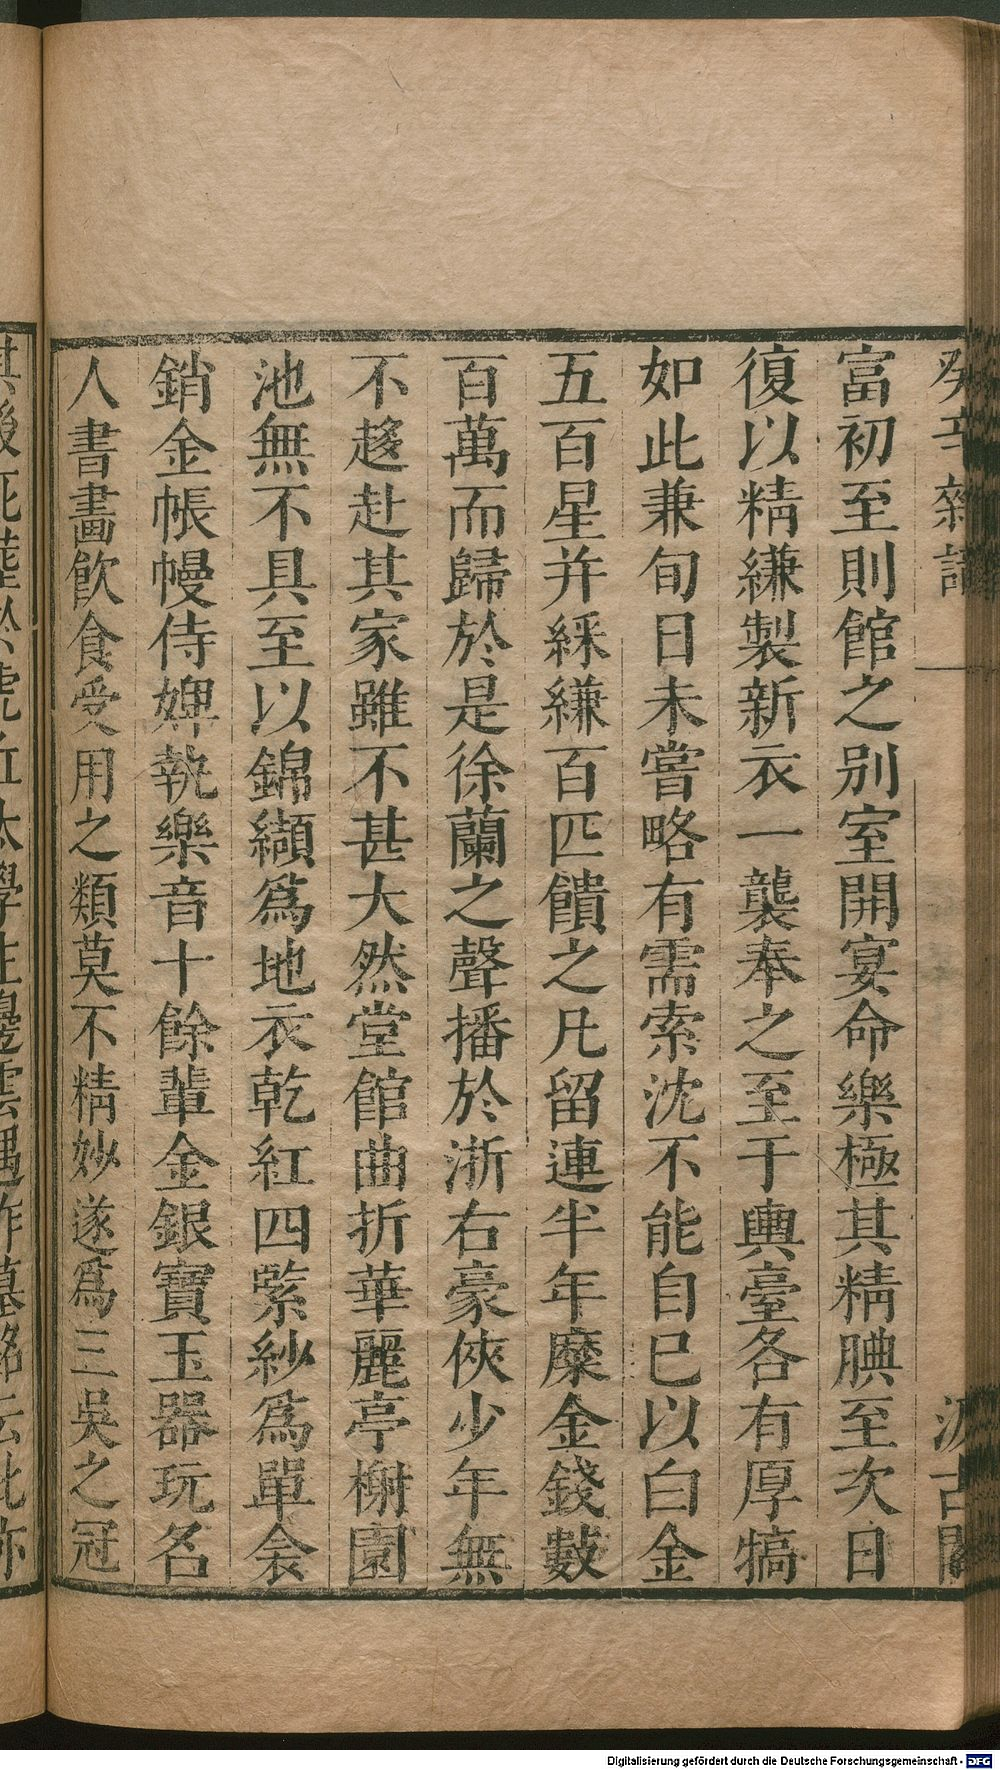 癸辛雜識
汲古閣
富初至則館之別室開宴命樂極其精腆至次日
復以精縑製新衣一襲奉之至于輿臺各有厚犒
如此兼旬日未嘗略有需索沈不能自已以白金
五百星并綵縑百匹饋之凡留連半年糜金錢數
百萬而歸於是徐蘭之聲播於浙右豪俠少年無
不趨赴其家雖不甚大然堂館曲折華麗亭榭園
池無不具至以錦纈爲地衣乾紅四紧紗爲單衾
銷金帳幔侍婢執樂音十餘輩金銀寶玉器玩名
人書畫飲食受用之類莫不精妙遂爲三吳之冠
其後死葬於虎丘太學生邊雲遇作墓銘云此亦
Digitalisierung gefördert durch die Deutsche Forschungsgemeinschaft - DFG